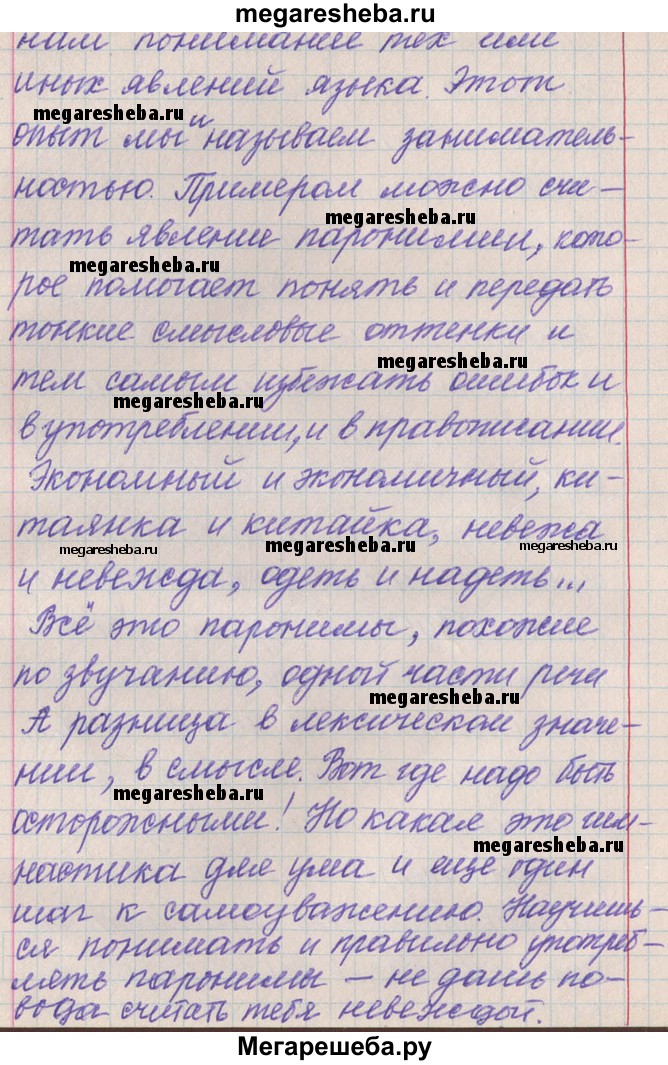 megaresheba.ru
ним понимание тех или
иных явлений языка. Этот
megaresheba.ru
опыт мы и называем заниматель-
ностью. Примером можно счи-
megaresheba.ru
тать явление паронимии, кото-
megaresheba.ru
рое помогает понять и передать
тонкие смысловые оттенки и
megaresheba.ru
тем самым избежать ошибок и
megaresheba.ru
в употреблении, и в правописании.
Экономный и экономичный, ки-
таянка и китайка, невежа
megaresheba.ru megaresheba.ru megaresheba.ru
и невежда, одеть и надеть...
Всё это паронимы, похожие
по звучанию, одной части речи
megaresheba.ru
А разница в лексическом значе-
нии, в смысле. Вот где надо быть
megaresheba.ru
осторожными! Но какая это гим-
megaresheba.ru
настика для ума и еще один
шаг к самоуважению. Научишь-
ся понимать и правильно употреб-
лять паронимы – не дашь по-
вода считать тебя невеждой.
Мегарешеба.ру